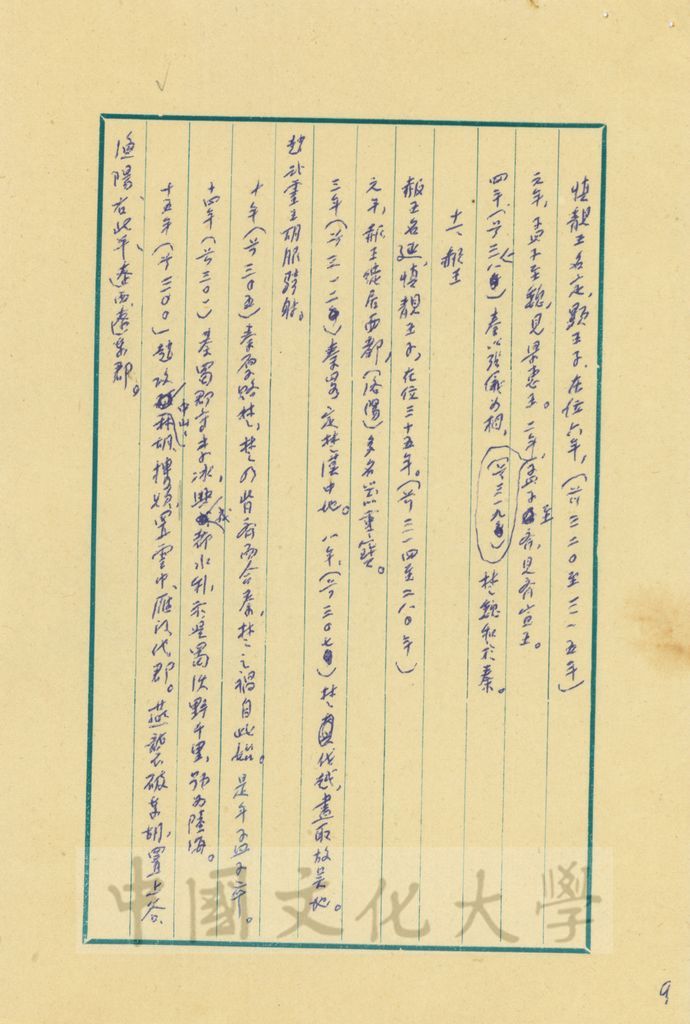 慎靚王名定,顯王子,在位六年,(前三二〇至三一五年)
元年,孟子至魏,見梁惠王。二年,孟子至齊,見齊宣王。
四年,(前三一八)秦以張儀為相,(前三一九)楚、魏和於秦。
十一、赧王
赧王名延,慎靚王子,在位三十五年。(前三一四至二八〇年)
元年,赧王徙居西都,(洛陽)多名器重寶。
三年(前三一二)秦略定楚漢中地。八年,(前三〇七)楚伐越,盡取故吳地。
趙武靈王胡服騎射。
十年(前三〇五)秦厚賂楚,楚乃背齊而合秦,楚之禍自此始。是年孟子卒。
十四年(前三〇一)秦蜀郡守李冰,興成都水利,於是蜀沃野千里,號為陸海。
十五年(前三〇〇)趙攻中山、林胡、樓煩,置雲中、雁門、代郡。燕將破東胡,置上谷、
漁陽、右北平、遼西、遼東郡。
中國文化大學
9